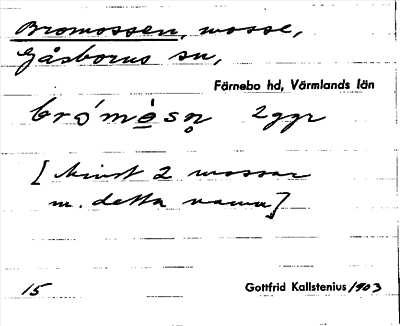 Bromossen, mosse,
Gåsborns sn,
Färnebo hd, Värmlands län
brǫ́mòsn̥ 2ggr
[minst 2 mossar
m. detta namn]
15 Gottfrid Kallstenius 1903